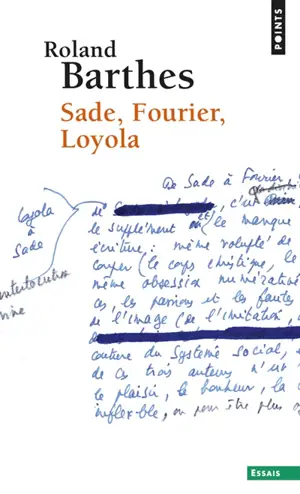 POINTS
Roland
Barthes
Sade, Fourier,
Loyola
De Sade à Fourier
Loyola
à
Sade
de
, c'est
le supplément
le manque
écriture : même volupté de
couper (le corps christique, le
même obsession numérative
ces, les passions et les fautes
de l'image (de l'imitation,
du système social,
de ces trois auteurs n'est
le plaisir, le bonheur, la
inflexible, on peut être plus
ESSAIS